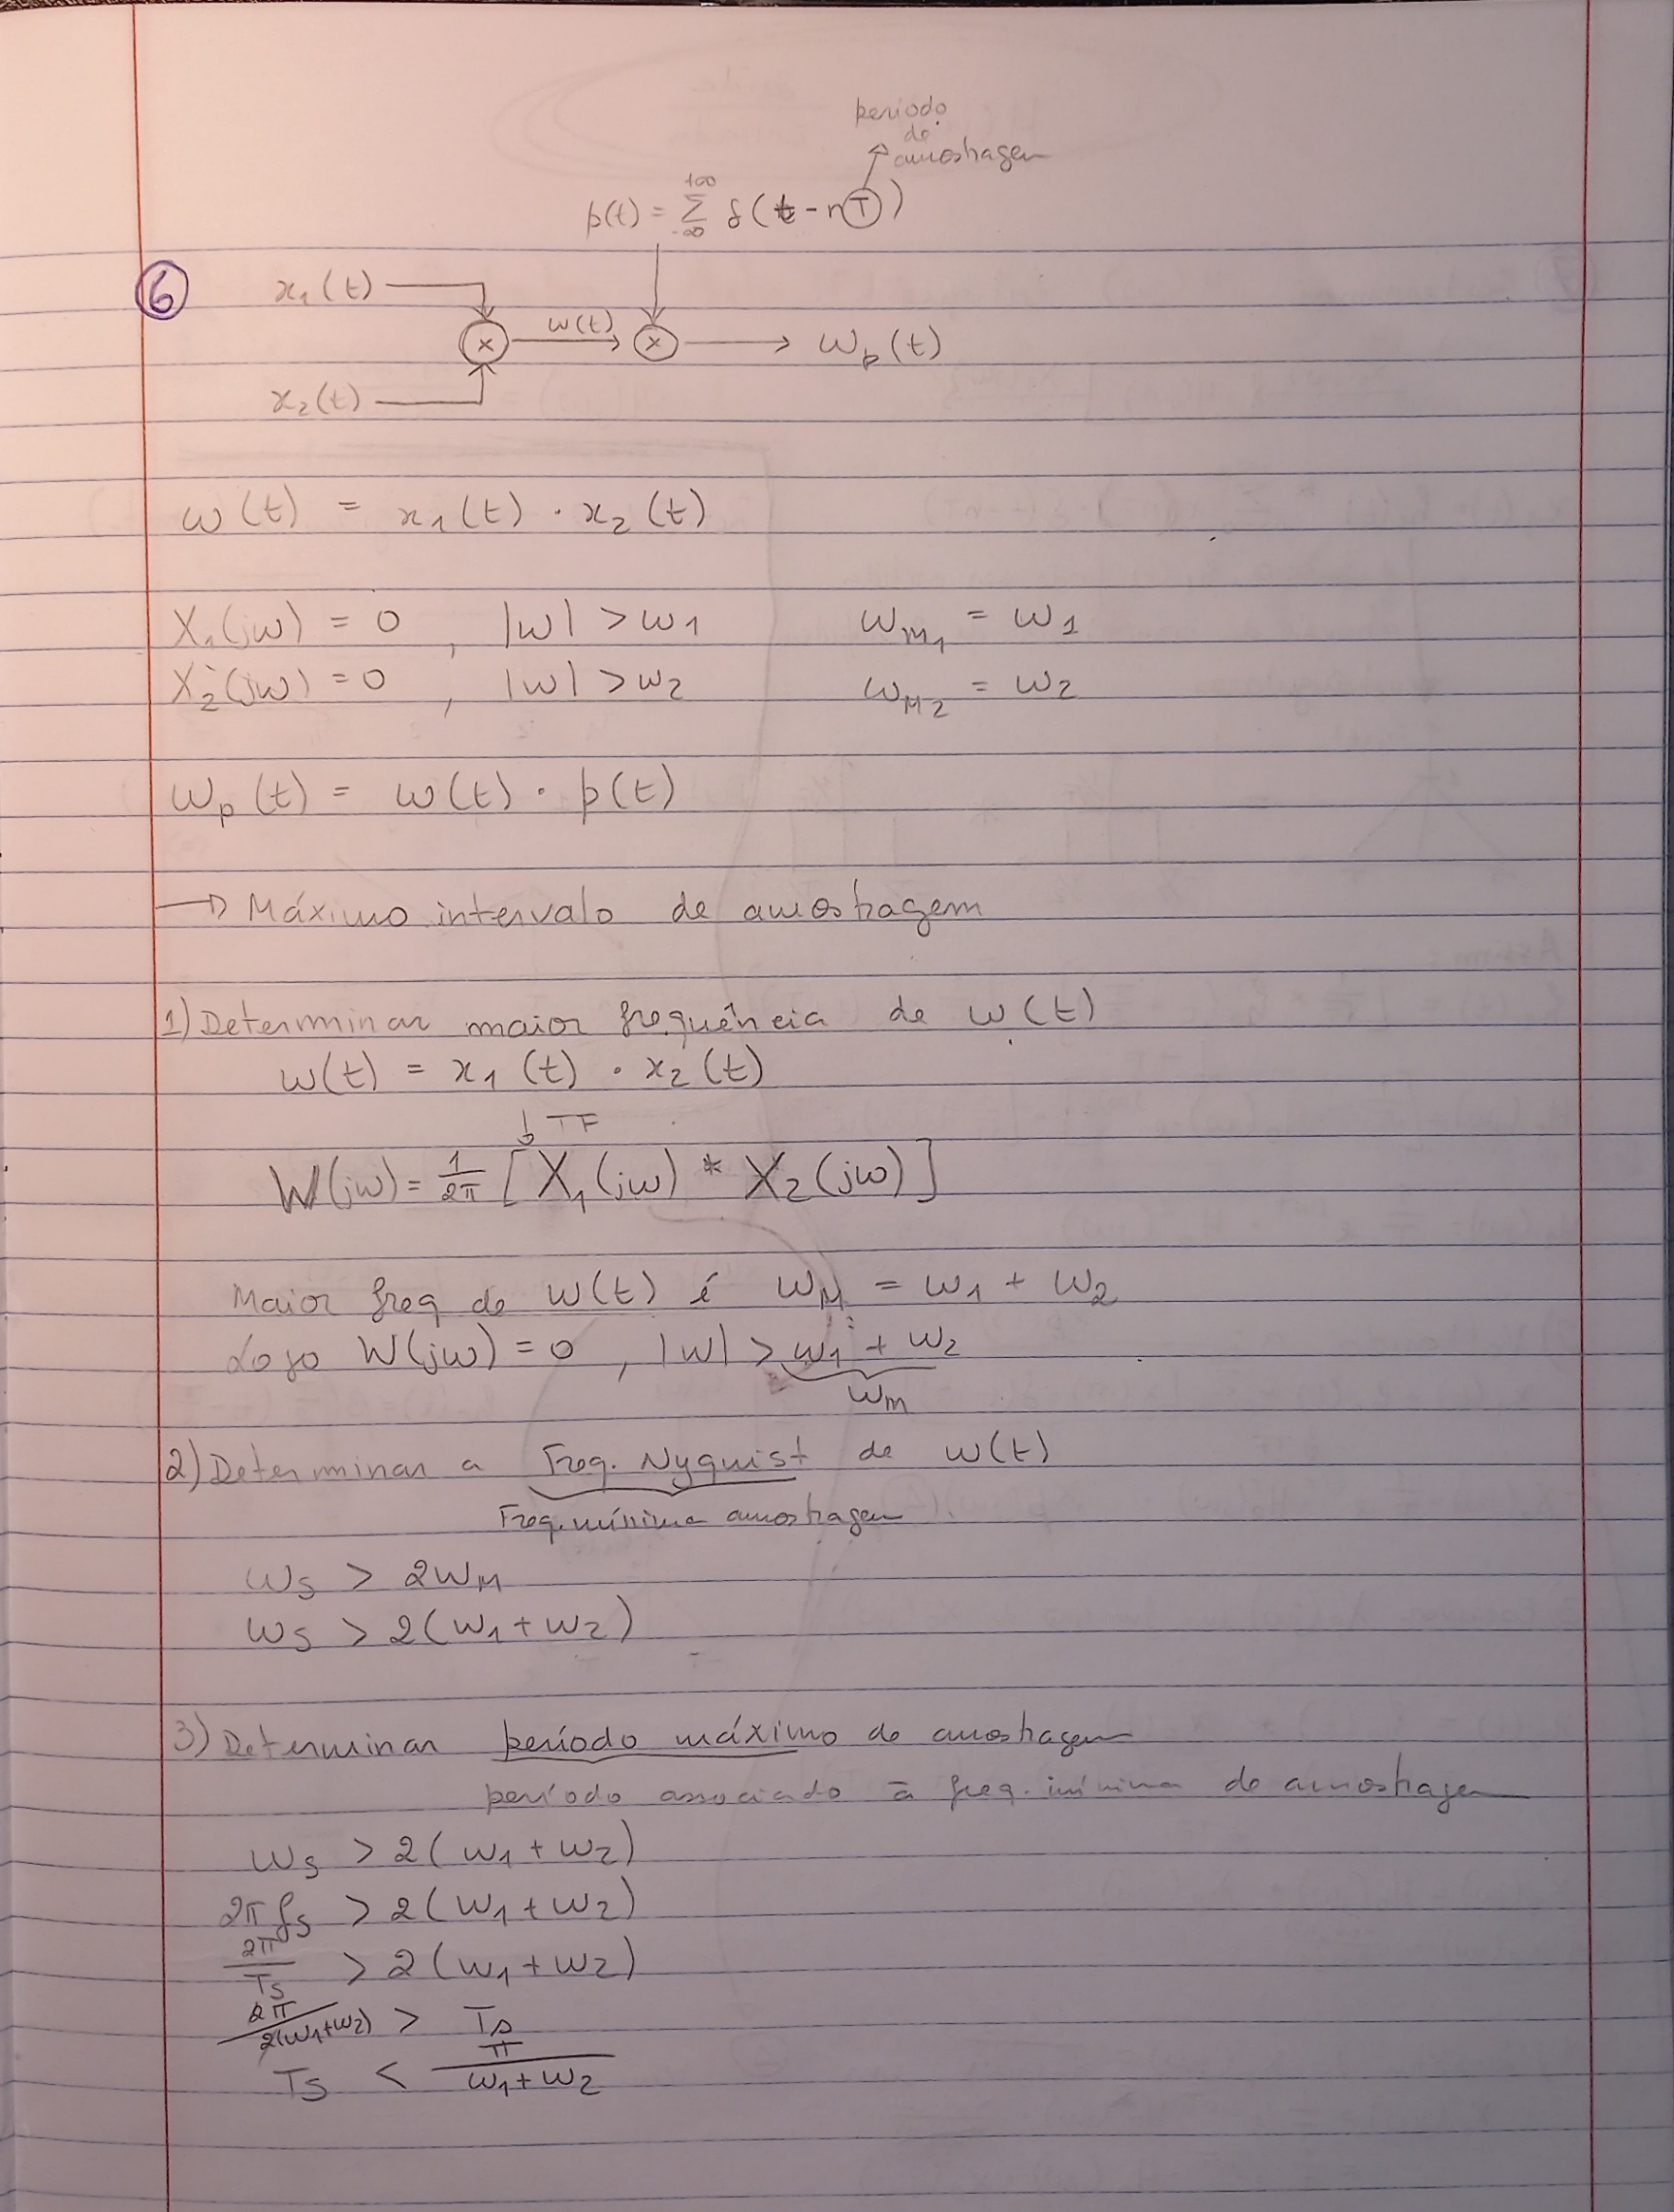 período
de
amostragem
p(t) = +∞ Σ -∞ δ(t - nT)
6
x₁(t)
w(t)
x x → wₚ(t)
x₂(t)
w(t) = x₁(t) · x₂(t)
X₁(jω) = 0 , |ω| > ω₁ ωM₁ = ω₁
X₂(jω) = 0 , |ω| > ω₂ ωM₂ = ω₂
wₚ(t) = w(t) · p(t)
→ Máximo intervalo de amostragem
1) Determinar maior frequência de w(t)
w(t) = x₁(t) · x₂(t)
↓ TF
W(jω) = 1/2π [X₁(jω) * X₂(jω)]
Maior freq de w(t) é ωM = ω₁ + ω₂
Logo W(jω) = 0 , |ω| > ω₁ + ω₂
ωm
2) Determinar a Freq. Nyquist de w(t)
Freq. mínima amostragem
ωs > 2ωM
ωs > 2(ω₁ + ω₂)
3) Determinar período máximo de amostragem
período associado à freq. mínima de amostragem
ωs > 2(ω₁ + ω₂)
2π fs > 2(ω₁ + ω₂)
2π/Ts > 2(ω₁ + ω₂)
2π/2(ω₁+ω₂) > Ts
Ts < π/ω₁+ω₂